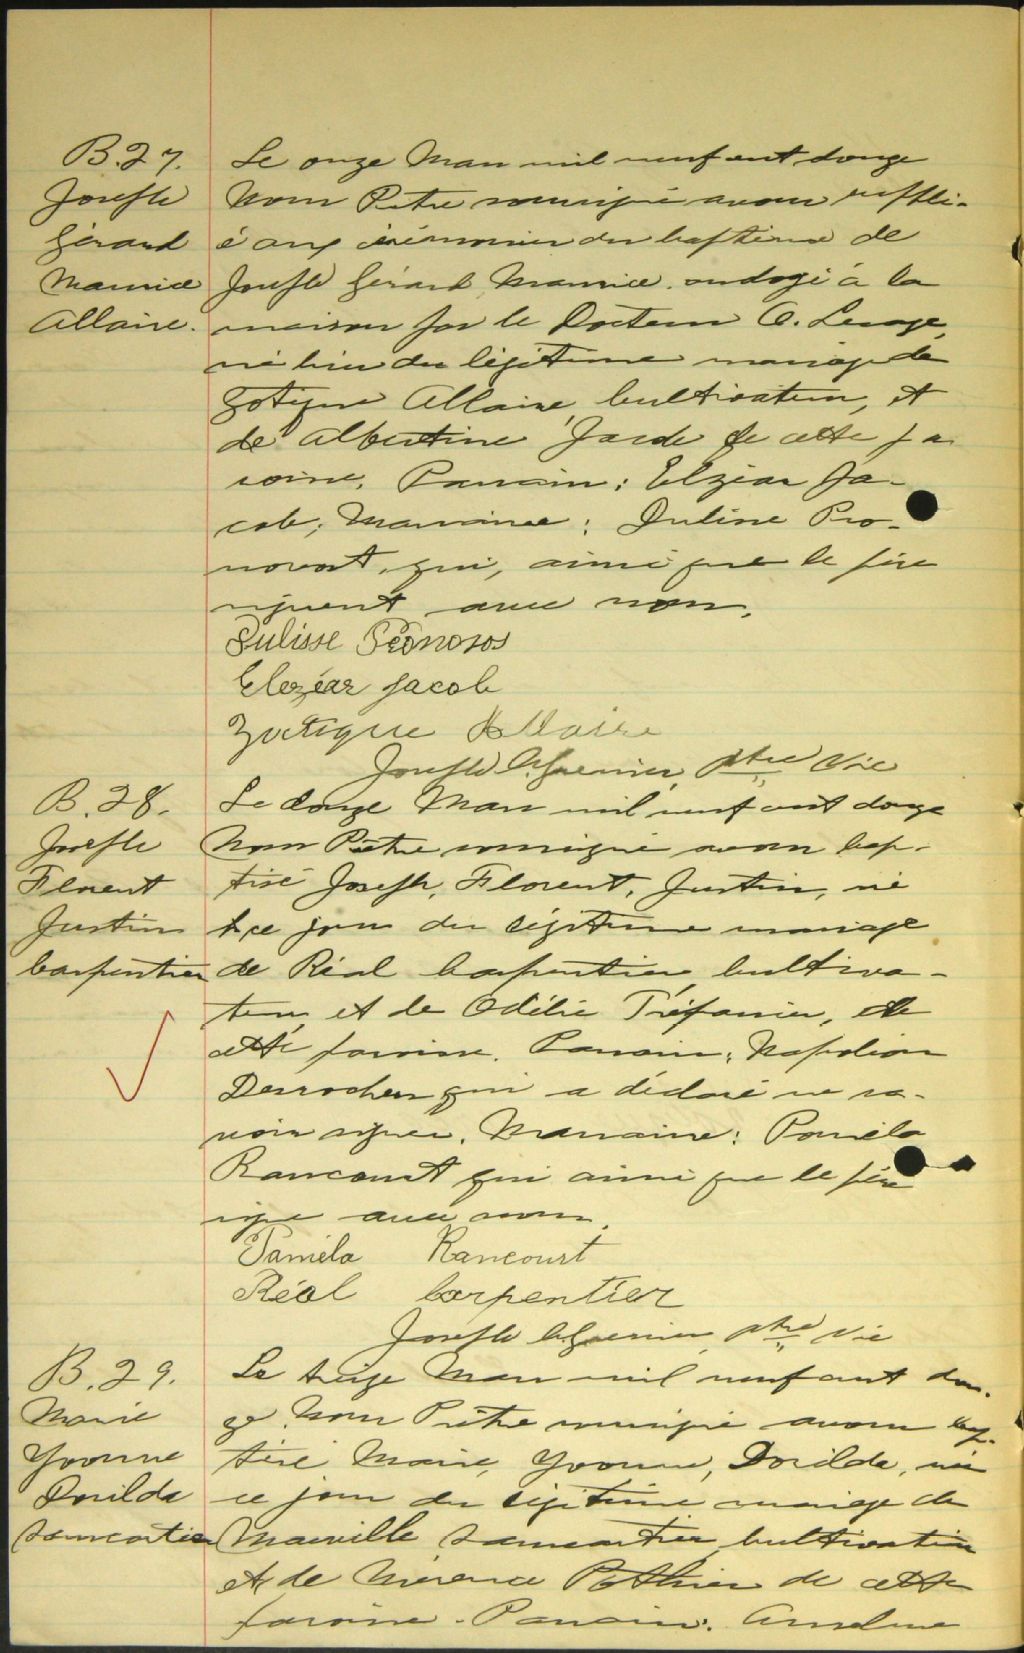 B.27.
Joseph
Gérard
Maurice
Allaire.
Le onze Mars mil neuf cent douze
Nous Prêtre soussigné avons suppli-
é aux cérémonies du baptême de
Joseph Gérard, Maurice. ondoyé à la
maison par le Docteur O. Lesage,
né hier du légitime mariage de
Zotique Allaire, cultivateur, et
de Albertine Jacob de cette pa
roisse. Parrain: Elzéar Ja-
cob; Marraine: Pro-
novost, qui, ainsi que le père
signent avec nous.
Pronovos
Elezéar Jacob
Zotique Allaire
Joseph Grenier, ptre Vic
B.28.
Joseph
Florent
Justin
Carpentier
Le douze Mars mil neuf cent douze
Nous Prêtre soussigné avons bap-
tisé Joseph, Florent, Justin, né
ce jour du légitime mariage
de Réal Carpentier, cultiva-
teur et de Odélie Trépanier, de
cette paroisse. Parrain: Napoléon
Desrochers qui a déclaré ne sa-
voir signer. Marraine: Paméla
Rancourt qui ainsi que le père
signe avec nous.
Paméla Rancourt
Réal Carpentier
Joseph Grenier, ptre Vic
B.29.
Marie
Yvonne
Dorilda
Sanscartier
Le treize Mars mil neuf cent dou-
ze Nous Prêtre soussigné avons bap-
tisé Marie, Yvonne, Dorilda, née
ce jour du légitime mariage de
Mainville Sanscartier, cultivateur
et de Pothier de cette
paroisse. Parrain: Anselme